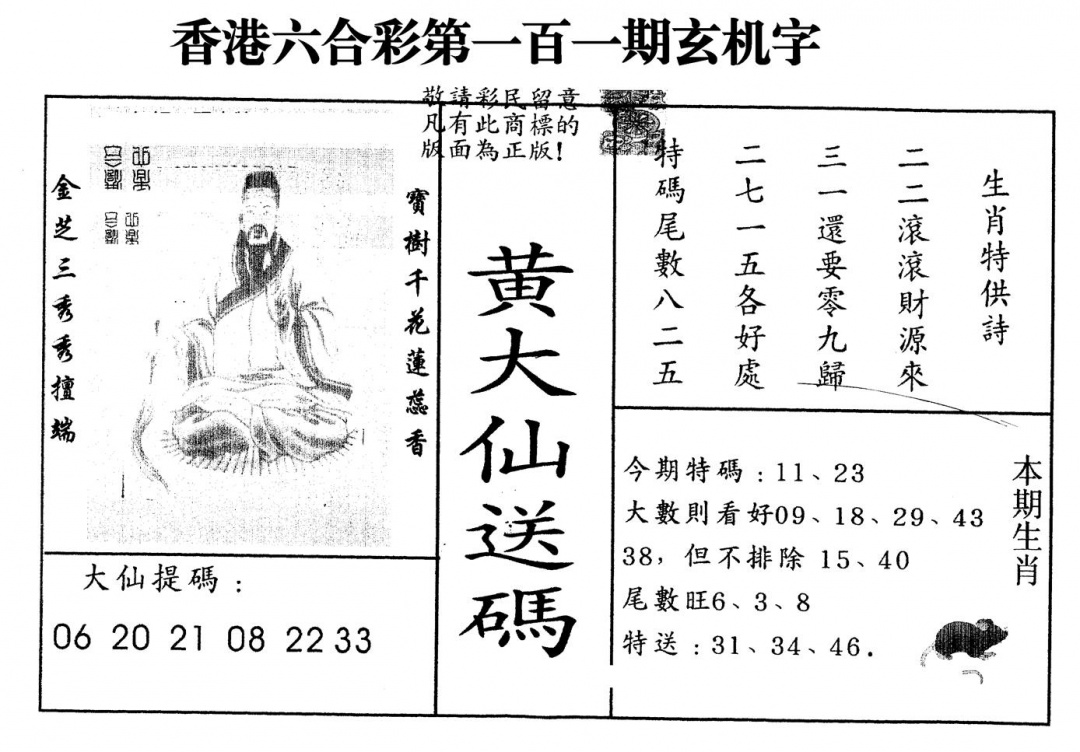 香港六合彩第一百一期玄机字
敬請彩民留意
凡有此商標的
版面為正版！
金芝三秀秀擅端
寶樹千花蓮蕊香
大仙提碼：
06 20 21 08 22 33
黄大仙送碼
生肖特供詩
二二滾滾財源來
三一還要零九歸
二七一五各好處
特碼尾數八二五
今期特碼：11、23
大數則看好09、18、29、43
38，但不排除 15、40
尾數旺6、3、8
特送：31、34、46.
本期生肖